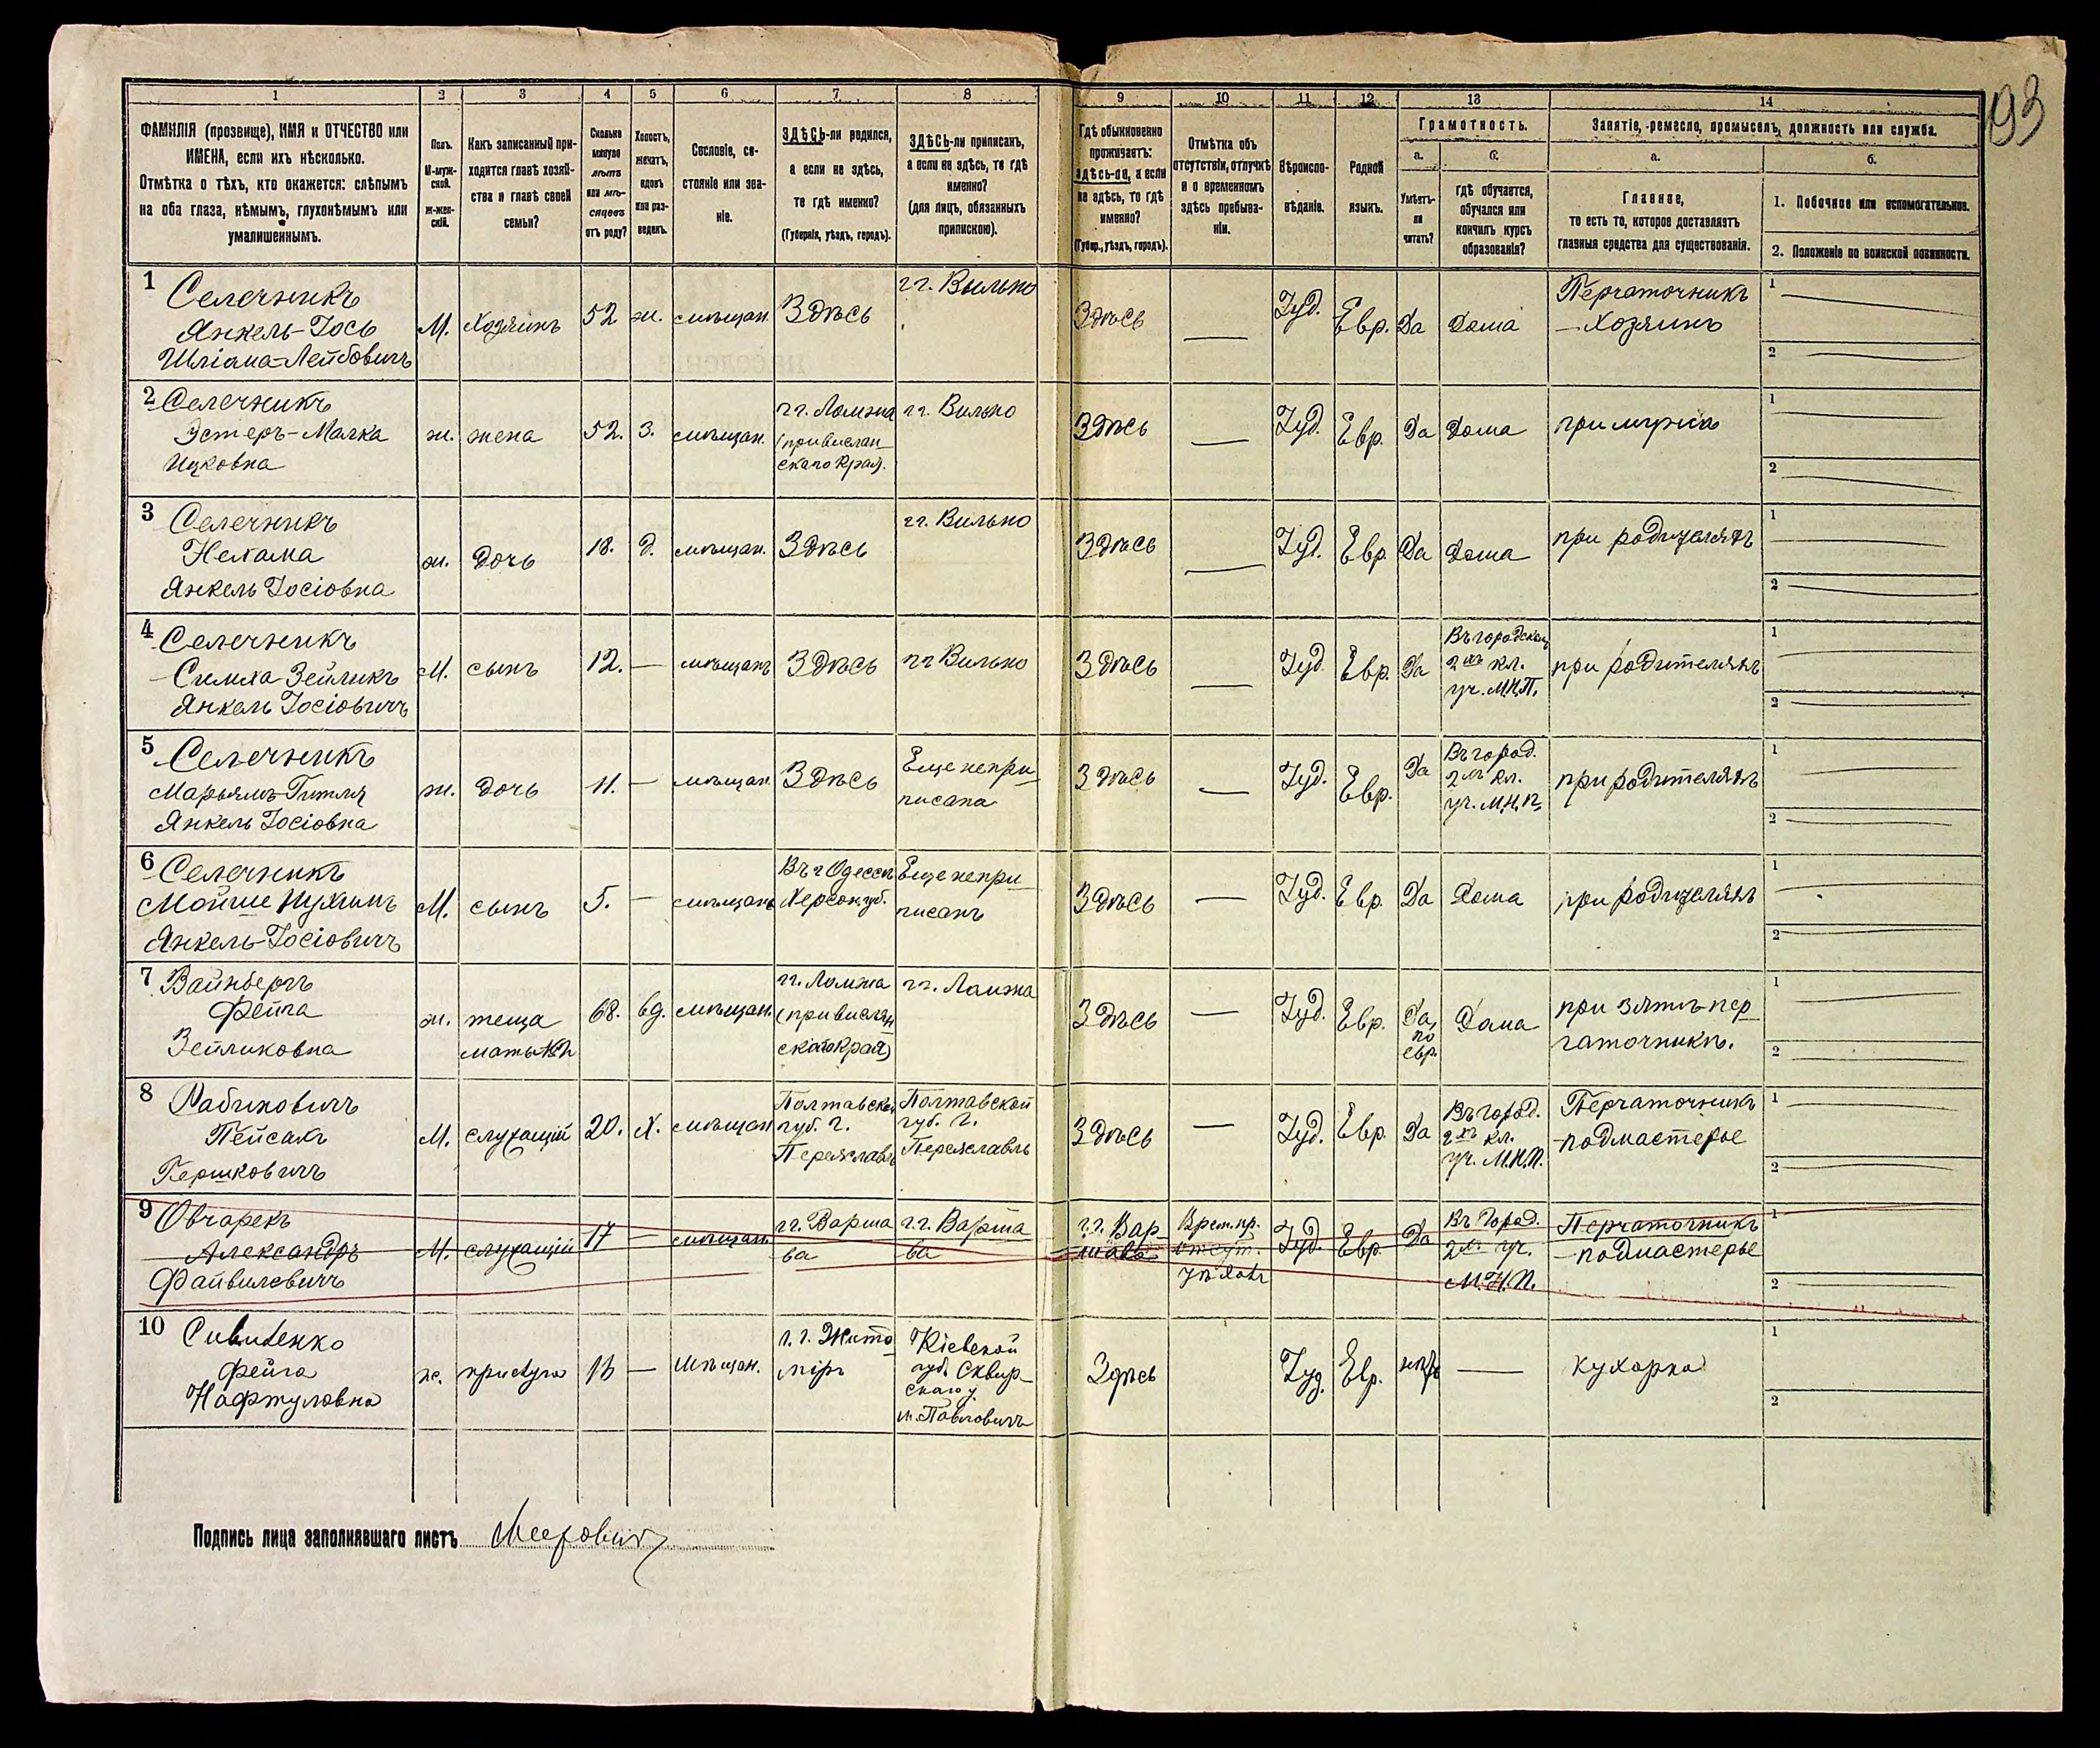 93
1
2
3
4
5
6
7
8
9
10
11
12
13
14
ФАМИЛІЯ (прозвище), ИМЯ и ОТЧЕСТВО или
ИМЕНА, если ихъ нѣсколько.
Отмѣтка о тѣхъ, кто окажется: слѣпымъ
на оба глаза, нѣмымъ, глухонѣмымъ или
умалишеннымъ.
Полъ.
М-муж-
ской.
Ж-жен-
скій.
Какъ записанный при-
ходится главѣ хозяй-
ства и главѣ своей
семьи?
Сколько
минуло
лѣтъ
или мѣ-
сяцевъ
отъ роду?
Холостъ,
женатъ,
вдовъ
или раз-
веденъ.
Сословіе, со-
стояніе или зва-
ніе.
ЗДѢСЬ-ли родился,
а если не здѣсь,
то гдѣ именно?
(Губернія, уѣздъ, городъ).
ЗДѢСЬ-ли приписанъ,
а если не здѣсь, то гдѣ
именно?
(для лицъ, обязанныхъ
припискою).
Гдѣ обыкновенно
проживаетъ:
здѣсь-ли, а если
не здѣсь, то гдѣ
именно?
(Губер., уѣздъ, городъ).
Отмѣтка объ
отсутствіи, отлучкѣ
и о временномъ
здѣсь пребыва-
ніи.
Вѣроиспо-
вѣданіе.
Родной
языкъ.
Грамотность.
а.
Умѣетъ-
ли
читать?
б.
гдѣ обучается,
обучался или
кончилъ курсъ
образованія?
Занятіе, ремесло, промыселъ, должность или служба.
а.
Главное,
то есть то, которое доставляетъ
главныя средства для существованія.
б.
1. Побочное или вспомогательное.
2. Положеніе по воинской повинности.
1
Селечникъ
Янкель-Іось
Шліома-Лейбовичъ
М.
Хозяинъ
52
ж.
мѣщан.
Здѣсь
гг. Вильно
Здѣсь
—
Іуд.
Евр.
Да
Дома
Перчаточникъ
— Хозяинъ
1
2
2
Селечникъ
Эстеръ-Малка
Ицковна
ж.
жена
52.
З.
мѣщан.
гг. Ломжа
(привислан-
скаго края).
гг. Вильно
Здѣсь
—
Іуд.
Евр.
Да
Дома
при мужѣ
1
2
3
Селечникъ
Нехама
Янкель Іосіовна
ж.
дочь
18.
Д.
мѣщан.
Здѣсь
гг. Вильно
Здѣсь
—
Іуд.
Евр.
Да
Дома
при родителяхъ
1
2
4
Селечникъ
Симха Зейликъ
Янкель Іосіовичъ
М.
сынъ
12.
—
мѣщанъ
Здѣсь
гг Вильно
Здѣсь
—
Іуд.
Евр.
Да
Въ городском
2хъ кл.
уч. М.Н.П.
при родителяхъ
1
2
5
Селечникъ
Марьямъ-Гитля
Янкель Іосіовна
ж.
дочь
11.
—
мѣщан.
Здѣсь
Еще непри-
писана
Здѣсь
—
Іуд.
Евр.
Да
Въ город.
2хъ кл.
уч. М.Н.П.
при родителяхъ
1
2
6
Селечникъ
Мойше Нухимъ
Янкель-Іосіовичъ
М.
сынъ
5.
—
мѣщанъ
Въ г Одессѣ
Херсон.губ.
Еще непри-
писанъ
Здѣсь
—
Іуд.
Евр.
Да
Дома
при родителяхъ
1
2
7
Вайнбергъ
Фейга
Зейликовна
ж.
теща
мать №2
68.
вд.
мѣщан.
гг. Ломжа
(привислян-
скаго края)
гг. Ломжа
Здѣсь
—
Іуд.
Евр.
Да,
по
евр.
Дома
при зятѣ-пер-
чаточникѣ.
1
2
8
Рабиновичъ
Пейсахъ
Гершковичъ
М.
служащій
20.
Х.
мѣщан
Полтавской
губ. г.
Переяславль
Полтавской
губ. г.
Переяславль
Здѣсь
—
Іуд.
Евр.
Да
Въ город.
2хъ кл.
уч. М.Н.П.
Перчаточникъ
-подмастерье
1
2
9
Овчарекъ
Александръ
Файвилевичъ
М.
служащій
17
—
мѣщанъ
гг. Варша
ва
г.г. Варша
ва
г.г. Вар-
шава
Врем. пр.
отсут.
Іуд.
Евр.
Да
Въ Город.
2хъ уч.
М.Н.П.
Перчаточникъ
-подмастерье
1
2
10
Фейга
Нафтуловна
ж.
прислуга
—
Мѣщан.
г.г. Жито-
міръ
Кіевской
губ. Сквир-
скаго у.
м. Павловичъ
Здѣсь
Іуд.
Евр.
нѣтъ
—
кухарка
1
2
Подпись лица заполнявшаго листъ Мееровичъ